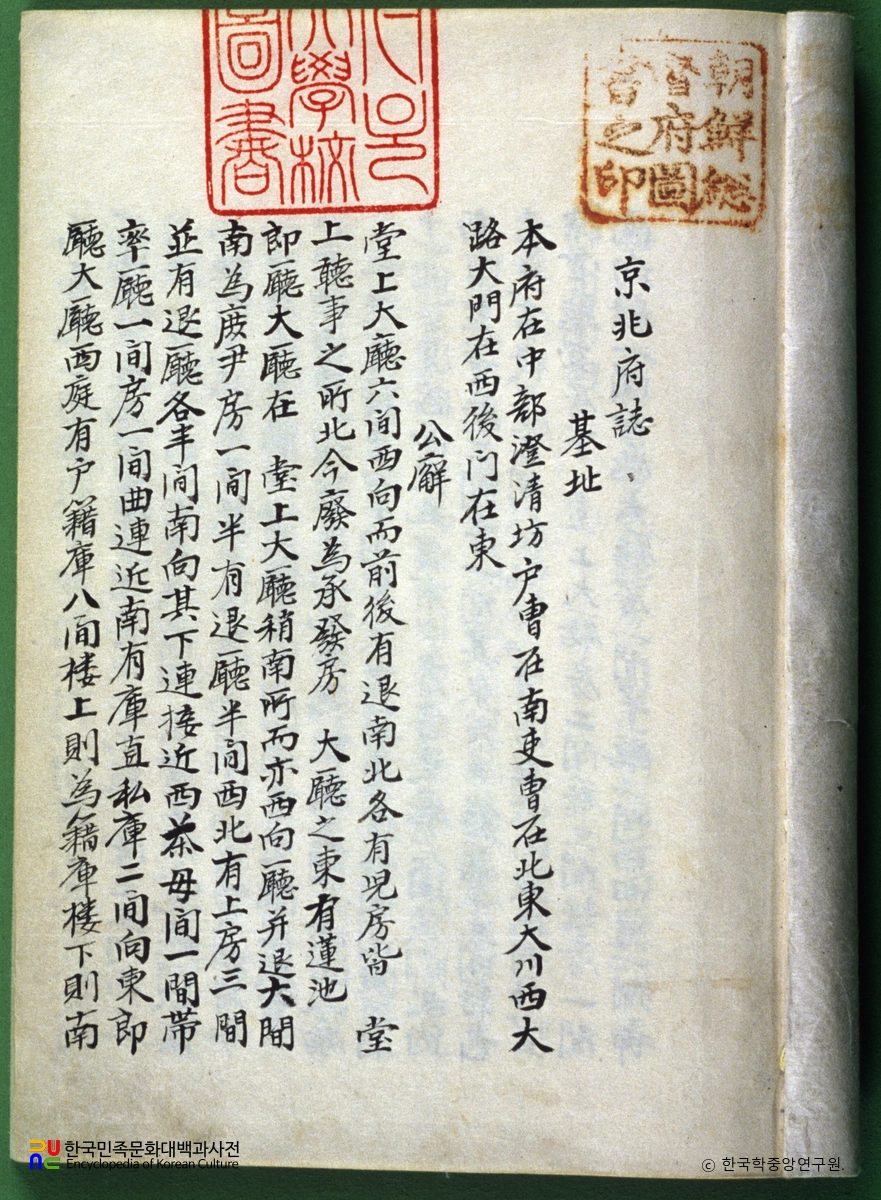 朝鮮総
督府圖
書之印
大學校
圖書
京兆府誌
基址
本府在中部澄清坊戶曹在南吏曹在北東大川西大
路大門在西後门在東
公廨
堂上大廳六间西向而前後有退南北各有児房皆 堂
上聽事之所北今廢為承發房 大廳之東有蓮池
即廳大廳在 堂上大廳稍南所而亦西向廳并退大間
南為庻尹房一间半有退廳半间西北有上房三間
並有退廳各半间南向其下連接近西茶母间一間帶
率廳一间房一间曲連近南有庫直私庫二间向東即
廳大廳西庭有戶籍庫八间楼上則為籍庫楼下則南
한국민족문화대백과사전
Encyclopedia of Korean Culture
ⓒ 한국학중앙연구원.